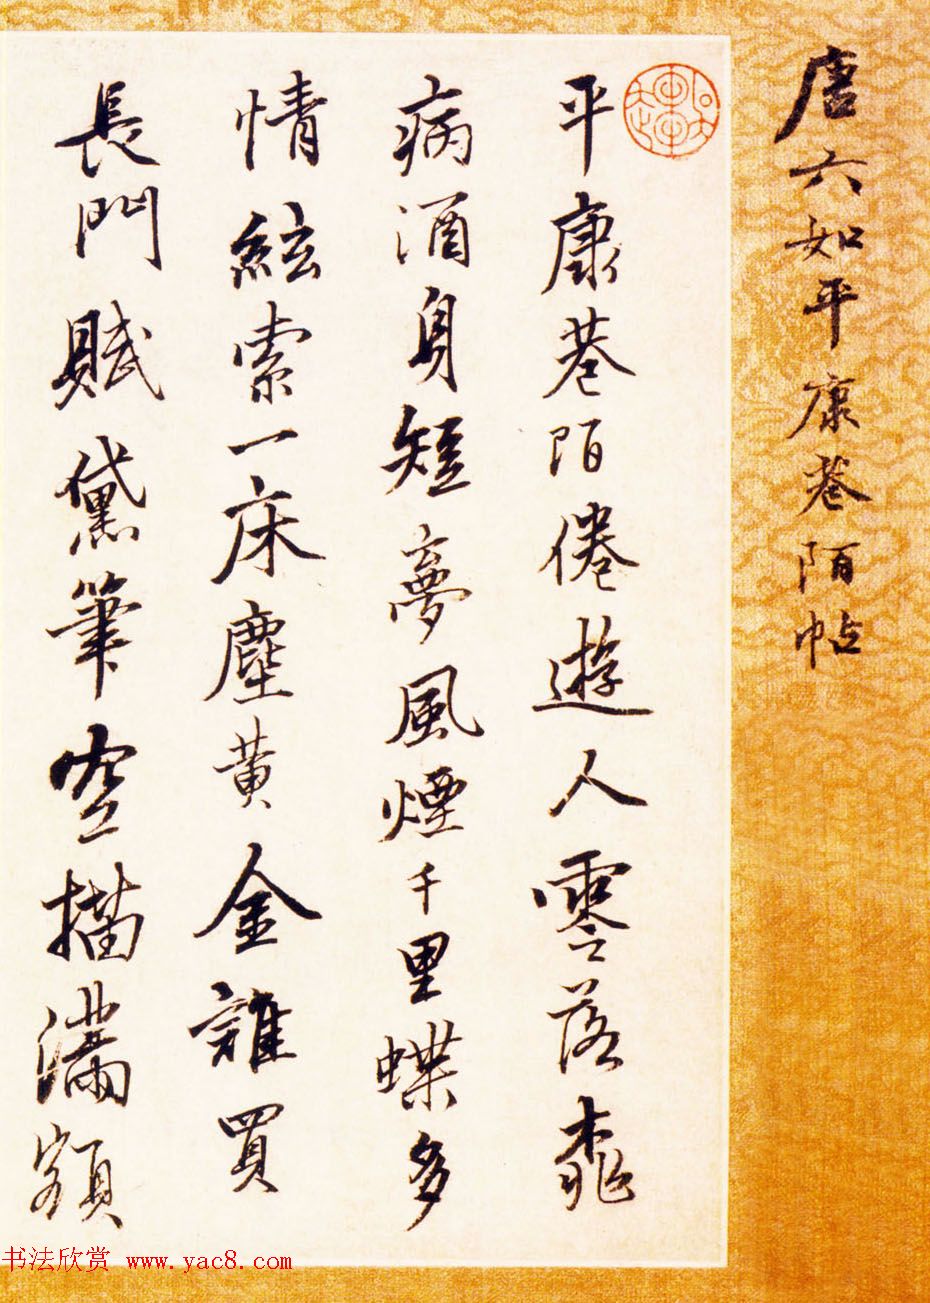 唐六如平康巷陌帖
平康巷陌倦遊人零落桃
病酒身短夢風煙千里蝶多
情絃索一床塵黃金誰買
長門賦黛筆空描滿額
书法欣赏 www.yac8.com